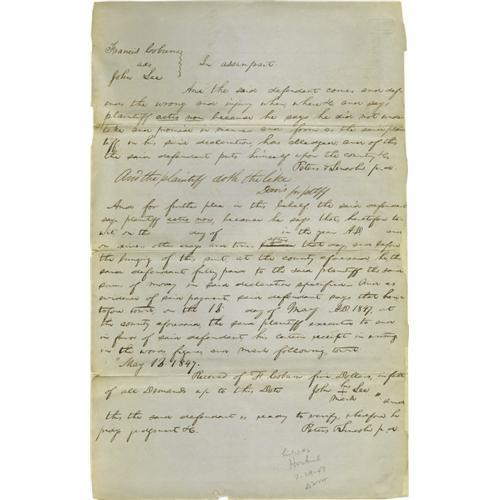 Francis
ads
John Lee
In assumpsit
And the said defendant comes and def
ends the wrong and injury when, where &c and says
plaintiff actio non because he says he did not under
take and promise in manner and form as the said plain
tiff in his said declaration has alleged and of this
the said defendant puts himself upon the country &c
Peters & Lincoln p.d.
And the plaintiff doth the like
Davis for pltff
And for further plea in this behalf the said defendant
says plaintiff actio non, because he says that, heretofore to
wit on the day of in the year AD and
on divers other days and times after that day and before
the bringing of this suit at the county aforesaid, he the
said defendant fully paid to the said plaintiff the said
sum of money in said declaration specified And as
evidence of said payment said defendant says that here
tofore towit on the 13 day of May AD 1847, at
the county aforesaid the said plaintiff executed to and
in favor of said defendant his certain receipt in writing
in the words figures and mark following towit
"May 13. 1847.
Received of F. five Dollars, in full
of all Demands up to this Date
John his X mark Lee "
this the said defendant is ready to verify, wherefore he
prays judgment &c.
Peters & Lincoln p.d.